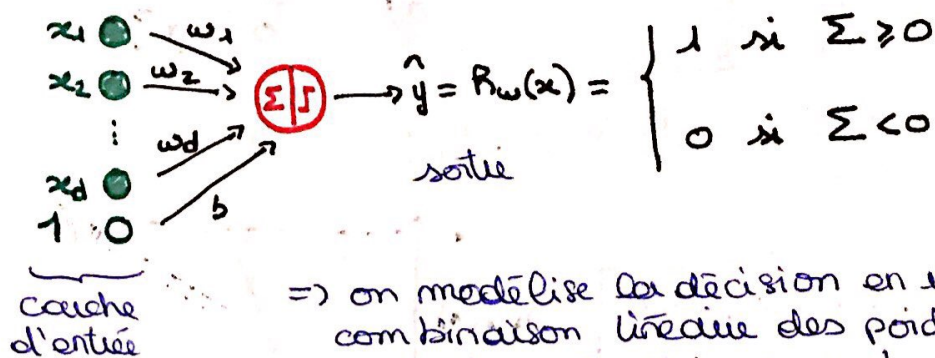 x1 ω1
x2 ω2
⋮ ωd
xd
1 b
Σ
ŷ = hω(x) = { 1 si Σ ≥ 0
0 si Σ < 0
sortie
couche
d'entrée
=> on modélise la décision en
combinaison linéaire des